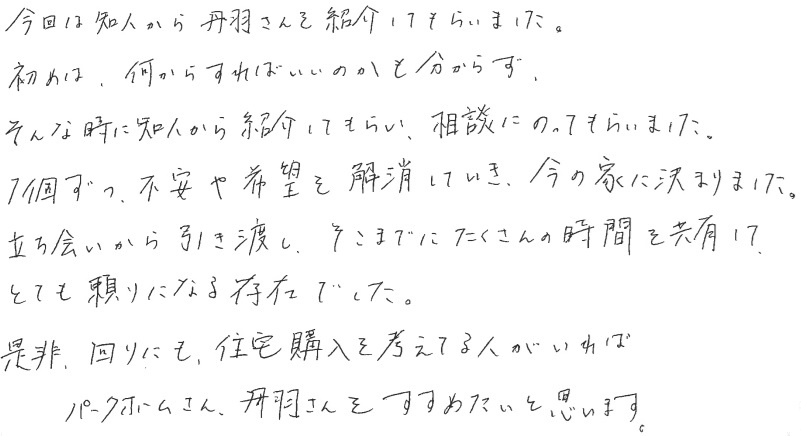 今回は知人から丹羽さんを紹介してもらいました。
初めは、何からすればいいのかも分からず、
そんな時に知人から紹介してもらい、相談にのってもらいました。
1個ずつ、不安や希望を解消していき、今の家に決まりました。
立ち会いから引き渡し、そこまでにたくさんの時間を共有して、
とても頼りになる存在でした。
是非、回りにも、住宅購入を考えてる人がいれば
パークホームさん、丹羽さんをすすめたいと思います。